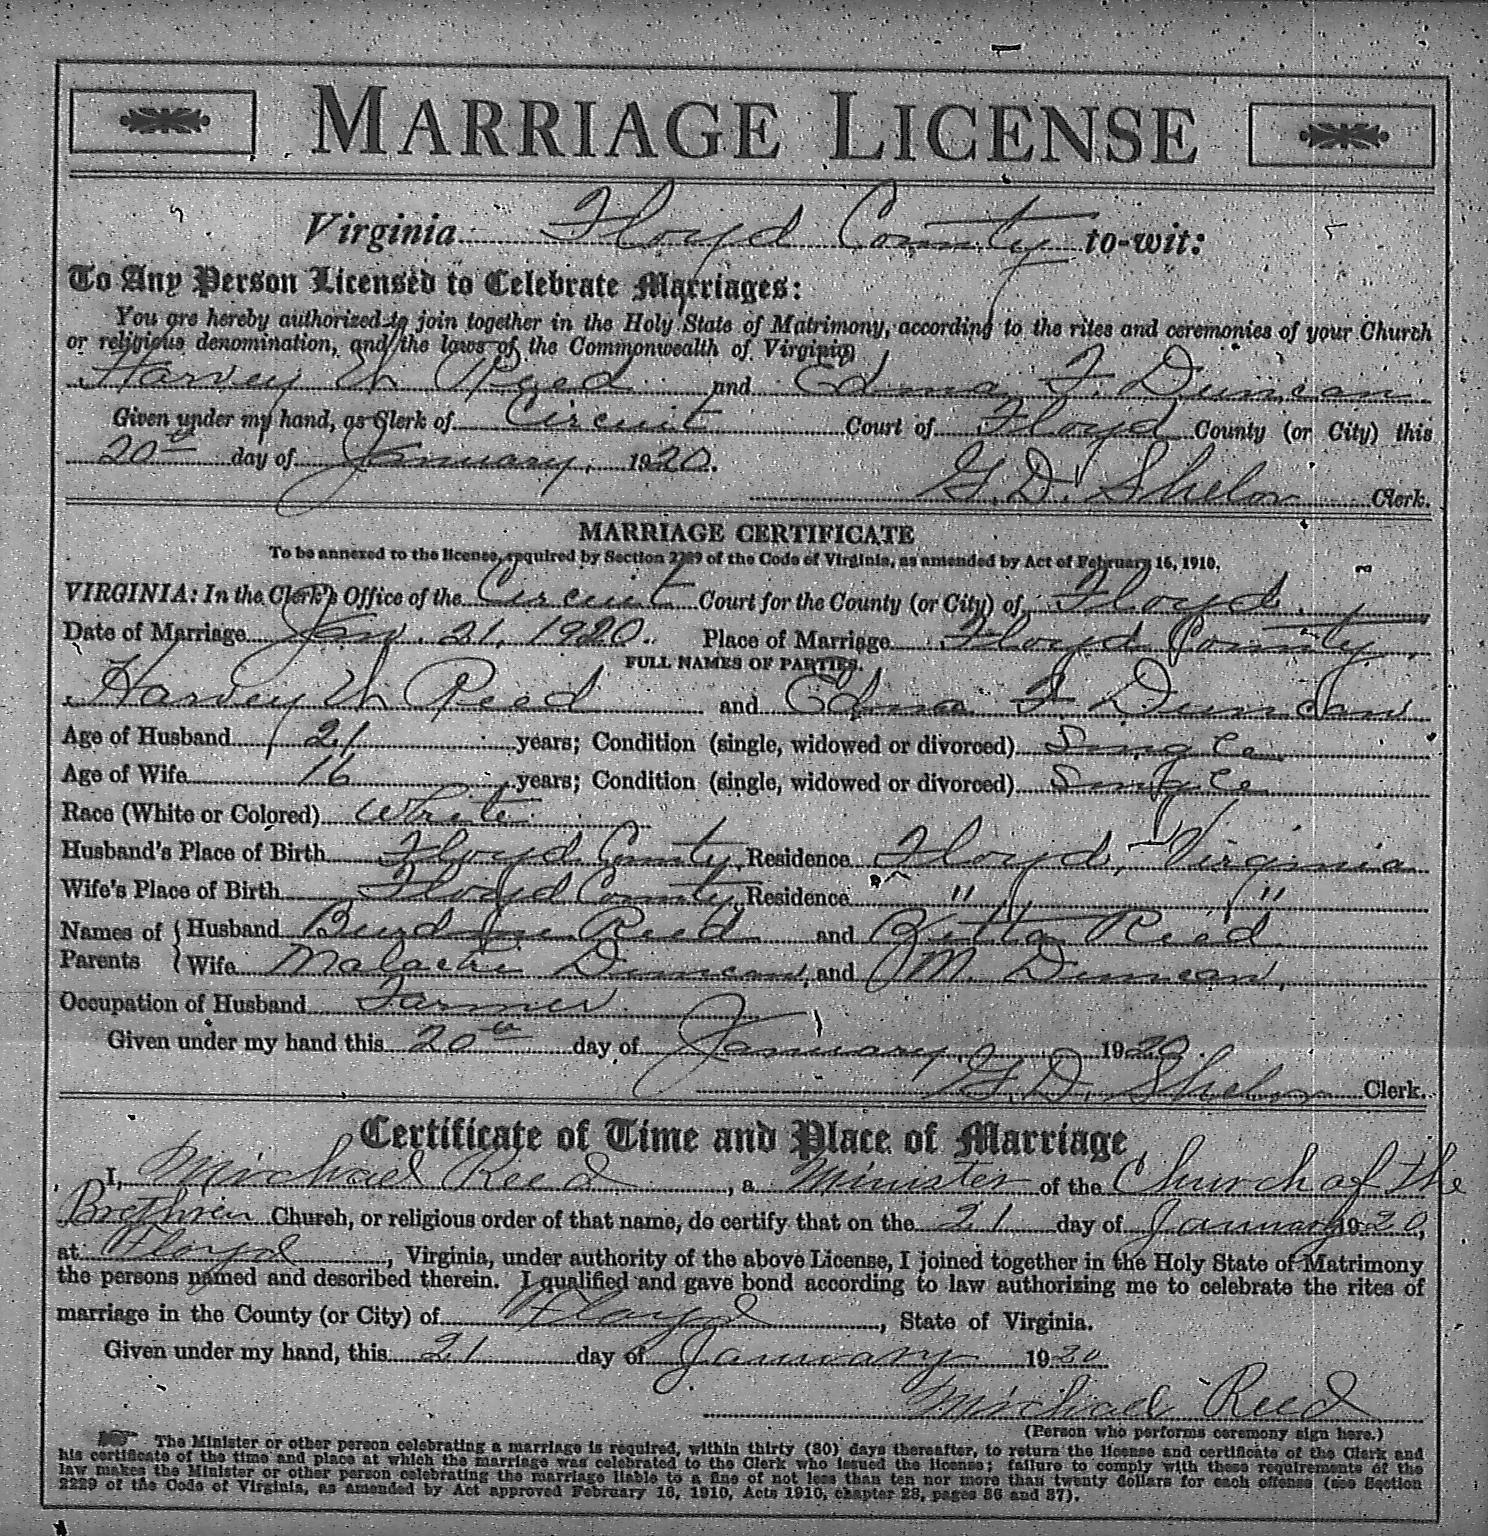 MARRIAGE LICENSE
Virginia Floyd County to-wit:
To Any Person Licensed to Celebrate Marriages:
You are hereby authorized to join together in the Holy State of Matrimony, according to the rites and ceremonies of your Church
or religious denomination, and the laws of the Commonwealth of Virginia,
Harvey W. Reed and Edna F. Duncan
Given under my hand, as Clerk of Circuit Court of Floyd County (or City) this
20th day of January, 1920.
G. D. Shelor Clerk.
MARRIAGE CERTIFICATE
To be annexed to the license, required by Section 2229 of the Code of Virginia, as amended by Act of February 16, 1910.
VIRGINIA: In the Clerk's Office of the Circuit Court for the County (or City) of Floyd.
Date of Marriage Jan. 21, 1920. Place of Marriage Floyd County.
FULL NAMES OF PARTIES.
Harvey W Reed and Edna F Duncan
Age of Husband 21 years; Condition (single, widowed or divorced) Single
Age of Wife 16 years; Condition (single, widowed or divorced) Single
Race (White or Colored) White
Husband's Place of Birth Floyd County, Residence Floyd, Virginia
Wife's Place of Birth Floyd County, Residence " "
Names of Parents Husband Reed and Reed
Wife Duncan, and M. Duncan,
Occupation of Husband Farmer.
Given under my hand this 20th day of January, 1920.
G. D. Shelor Clerk.
Certificate of Time and Place of Marriage
I, Michael Reed, a Minister of the Church of the
Brethren Church, or religious order of that name, do certify that on the 21 day of January 1920,
at Floyd, Virginia, under authority of the above License, I joined together in the Holy State of Matrimony
the persons named and described therein. I qualified and gave bond according to law authorizing me to celebrate the rites of
marriage in the County (or City) of Floyd, State of Virginia.
Given under my hand, this 21 day of January 1920
Michael Reed
(Person who performs ceremony sign here.)
The Minister or other person celebrating a marriage is required, within thirty (30) days thereafter, to return the license and certificate of the Clerk and
his certificate of the time and place at which the marriage was celebrated to the Clerk who issued the license; failure to comply with these requirements of the
law makes the Minister or other person celebrating the marriage liable to a fine of not less than ten nor more than twenty dollars for each offense (see Section
2229 of the Code of Virginia, as amended by Act approved February 16, 1910, Acts 1910, chapter 28, pages 36 and 37).